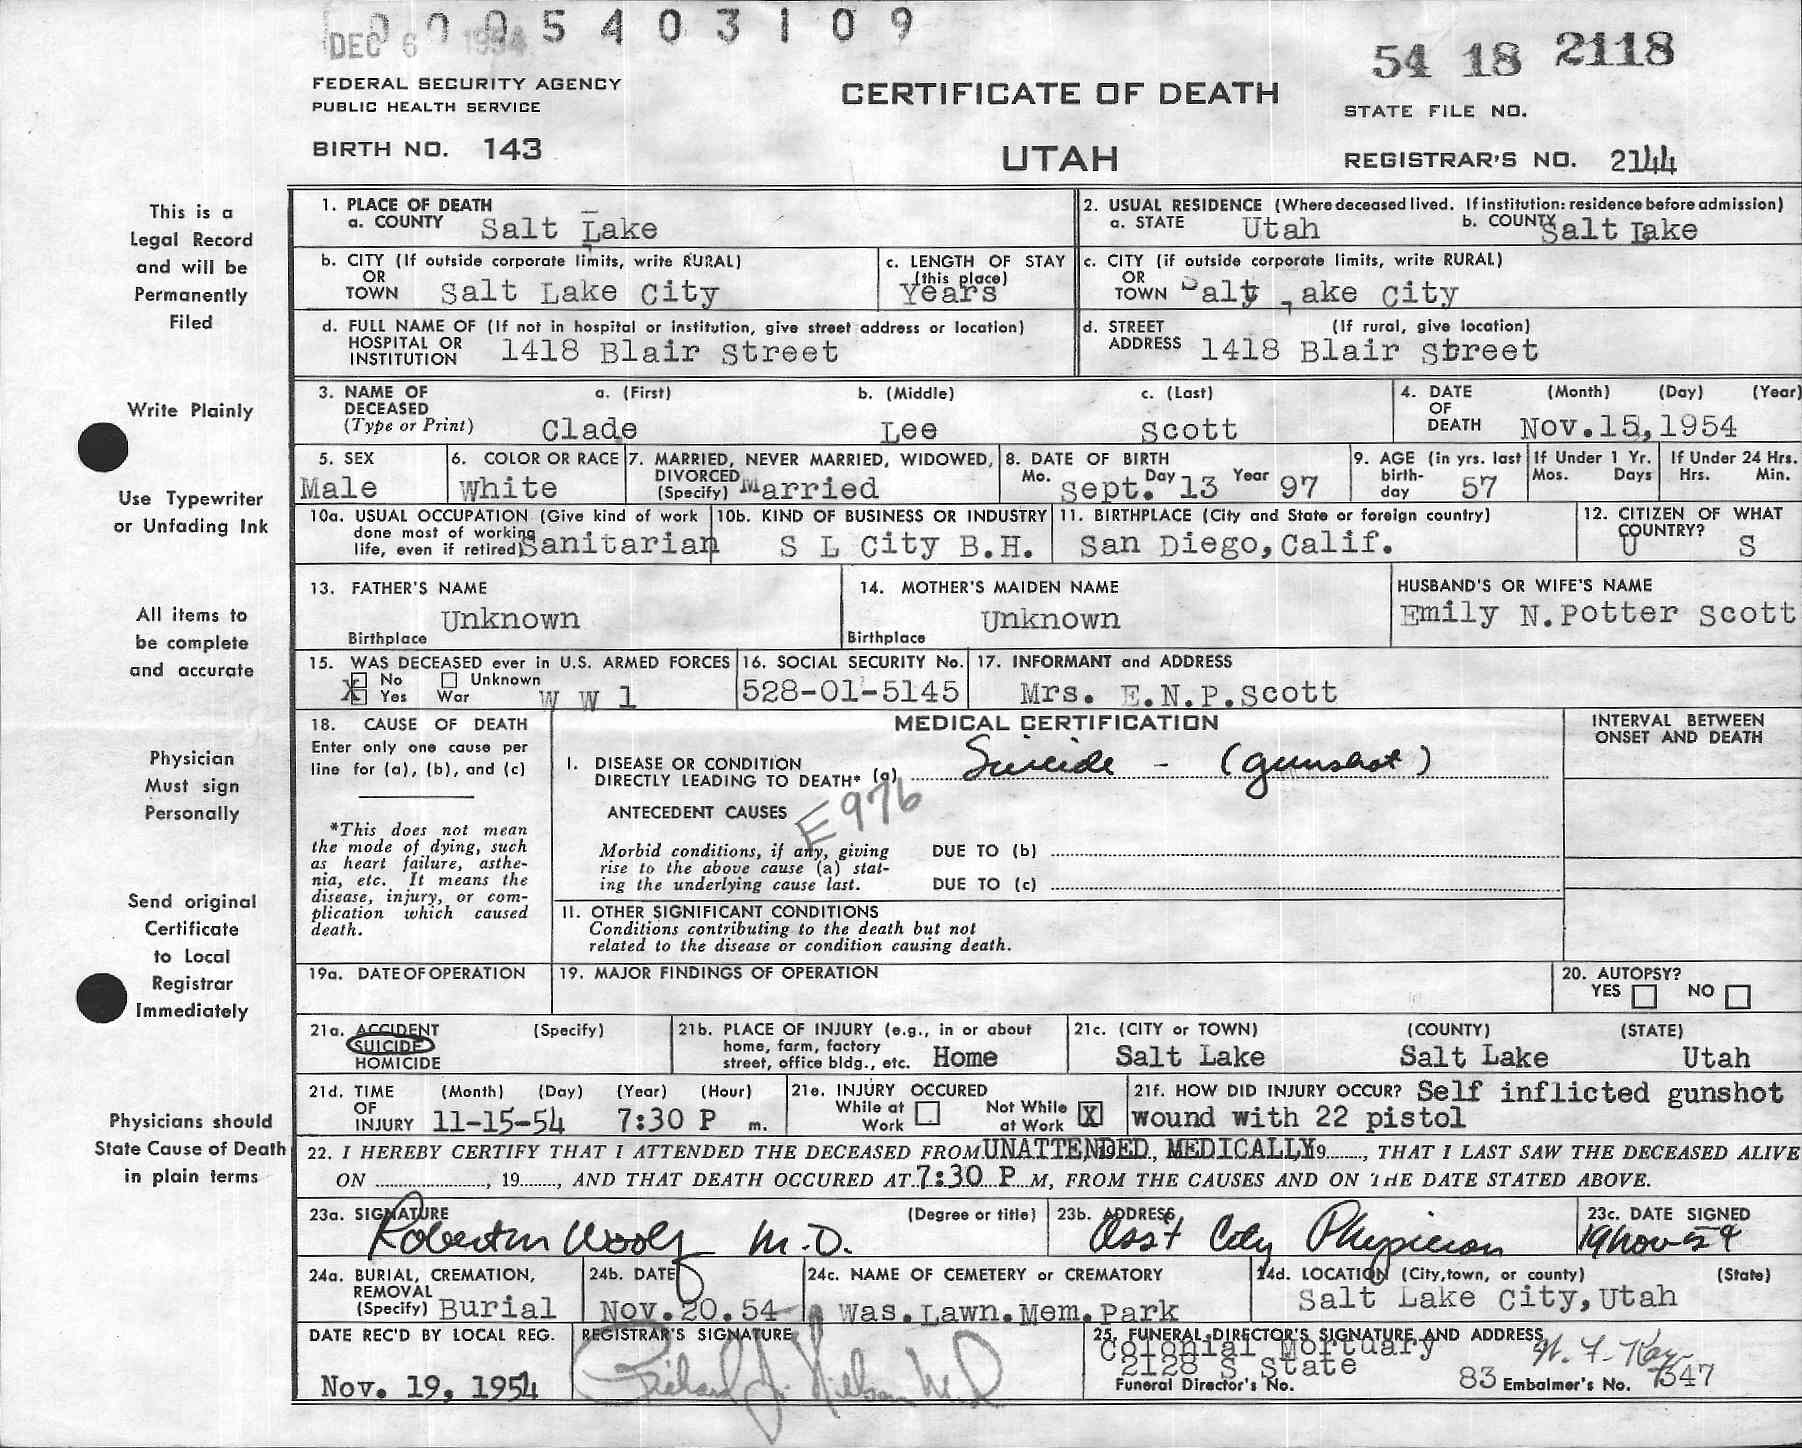 0005403109
DEC 6 1954
54 18 2118
FEDERAL SECURITY AGENCY
PUBLIC HEALTH SERVICE
CERTIFICATE OF DEATH
STATE FILE NO.
BIRTH NO. 143
UTAH
REGISTRAR'S NO. 2144
This is a
Legal Record
and will be
Permanently
Filed
Write Plainly
Use Typewriter
or Unfading Ink
All items to
be complete
and accurate
Physician
Must sign
Personally
Send original
Certificate
to Local
Registrar
Immediately
Physicians should
State Cause of Death
in plain terms
1. PLACE OF DEATH
a. COUNTY Salt Lake
2. USUAL RESIDENCE (Where deceased lived. If institution: residence before admission)
a. STATE Utah b. COUNTY Salt Lake
b. CITY (If outside corporate limits, write RURAL)
OR
TOWN Salt Lake City
c. LENGTH OF STAY
(this place)
Years
c. CITY (if outside corporate limits, write RURAL)
OR
TOWN Salt Lake City
d. FULL NAME OF (If not in hospital or institution, give street address or location)
HOSPITAL OR
INSTITUTION 1418 Blair Street
d. STREET (If rural, give location)
ADDRESS 1418 Blair Street
3. NAME OF a. (First) b. (Middle) c. (Last)
DECEASED
(Type or Print) Clade Lee Scott
4. DATE (Month) (Day) (Year)
OF
DEATH Nov. 15, 1954
5. SEX
Male
6. COLOR OR RACE
White
7. MARRIED, NEVER MARRIED, WIDOWED,
DIVORCED
(Specify) Married
8. DATE OF BIRTH
Mo. Sept. Day 13 Year 97
9. AGE (in yrs. last
birth-
day 57
If Under 1 Yr.
Mos. Days
If Under 24 Hrs.
Hrs. Min.
10a. USUAL OCCUPATION (Give kind of work
done most of working
life, even if retired) Sanitarian
10b. KIND OF BUSINESS OR INDUSTRY
S L City B.H.
11. BIRTHPLACE (City and State or foreign country)
San Diego, Calif.
12. CITIZEN OF WHAT
COUNTRY?
U S
13. FATHER'S NAME
Unknown
Birthplace
14. MOTHER'S MAIDEN NAME
Unknown
Birthplace
HUSBAND'S OR WIFE'S NAME
Emily N. Potter Scott
15. WAS DECEASED ever in U.S. ARMED FORCES
No Unknown
X Yes War W W 1
16. SOCIAL SECURITY No.
528-01-5145
17. INFORMANT and ADDRESS
Mrs. E.N.P. Scott
18. CAUSE OF DEATH
Enter only one cause per
line for (a), (b), and (c)
*This does not mean
the mode of dying, such
as heart failure, asthe-
nia, etc. It means the
disease, injury, or com-
plication which caused
death.
MEDICAL CERTIFICATION
INTERVAL BETWEEN
ONSET AND DEATH
I. DISEASE OR CONDITION
DIRECTLY LEADING TO DEATH* (a) Suicide - (gunshot)
ANTECEDENT CAUSES
E976
Morbid conditions, if any, giving
rise to the above cause (a) stat-
ing the underlying cause last.
DUE TO (b)
DUE TO (c)
II. OTHER SIGNIFICANT CONDITIONS
Conditions contributing to the death but not
related to the disease or condition causing death.
19a. DATE OF OPERATION
19. MAJOR FINDINGS OF OPERATION
20. AUTOPSY?
YES NO
21a. ACCIDENT (Specify)
SUICIDE
HOMICIDE
21b. PLACE OF INJURY (e.g., in or about
home, farm, factory
street, office bldg., etc. Home
21c. (CITY or TOWN) (COUNTY) (STATE)
Salt Lake Salt Lake Utah
21d. TIME (Month) (Day) (Year) (Hour)
OF
INJURY 11-15-54 7:30 P m.
21e. INJURY OCCURED
While at Work Not While at Work X
21f. HOW DID INJURY OCCUR? Self inflicted gunshot
wound with 22 pistol
22. I HEREBY CERTIFY THAT I ATTENDED THE DECEASED FROM UNATTENDED, MEDICALLY 19......, THAT I LAST SAW THE DECEASED ALIVE
ON ............, 19......, AND THAT DEATH OCCURED AT 7:30 P M, FROM THE CAUSES AND ON THE DATE STATED ABOVE.
23a. SIGNATURE (Degree or title)
M.D.
23b. ADDRESS
Ass't City Physician
23c. DATE SIGNED
19 Nov 54
24a. BURIAL, CREMATION,
REMOVAL
(Specify) Burial
24b. DATE
Nov. 20. 54
24c. NAME OF CEMETERY or CREMATORY
Was. Lawn. Mem. Park
24d. LOCATION (City, town, or county) (State)
Salt Lake City, Utah
DATE REC'D BY LOCAL REG.
Nov. 19, 1954
REGISTRAR'S SIGNATURE
Richard J. Nielson M.D
25. FUNERAL DIRECTOR'S SIGNATURE AND ADDRESS
Colonial Mortuary
2128 S State
Funeral Director's No. 83 Embalmer's No. 1347